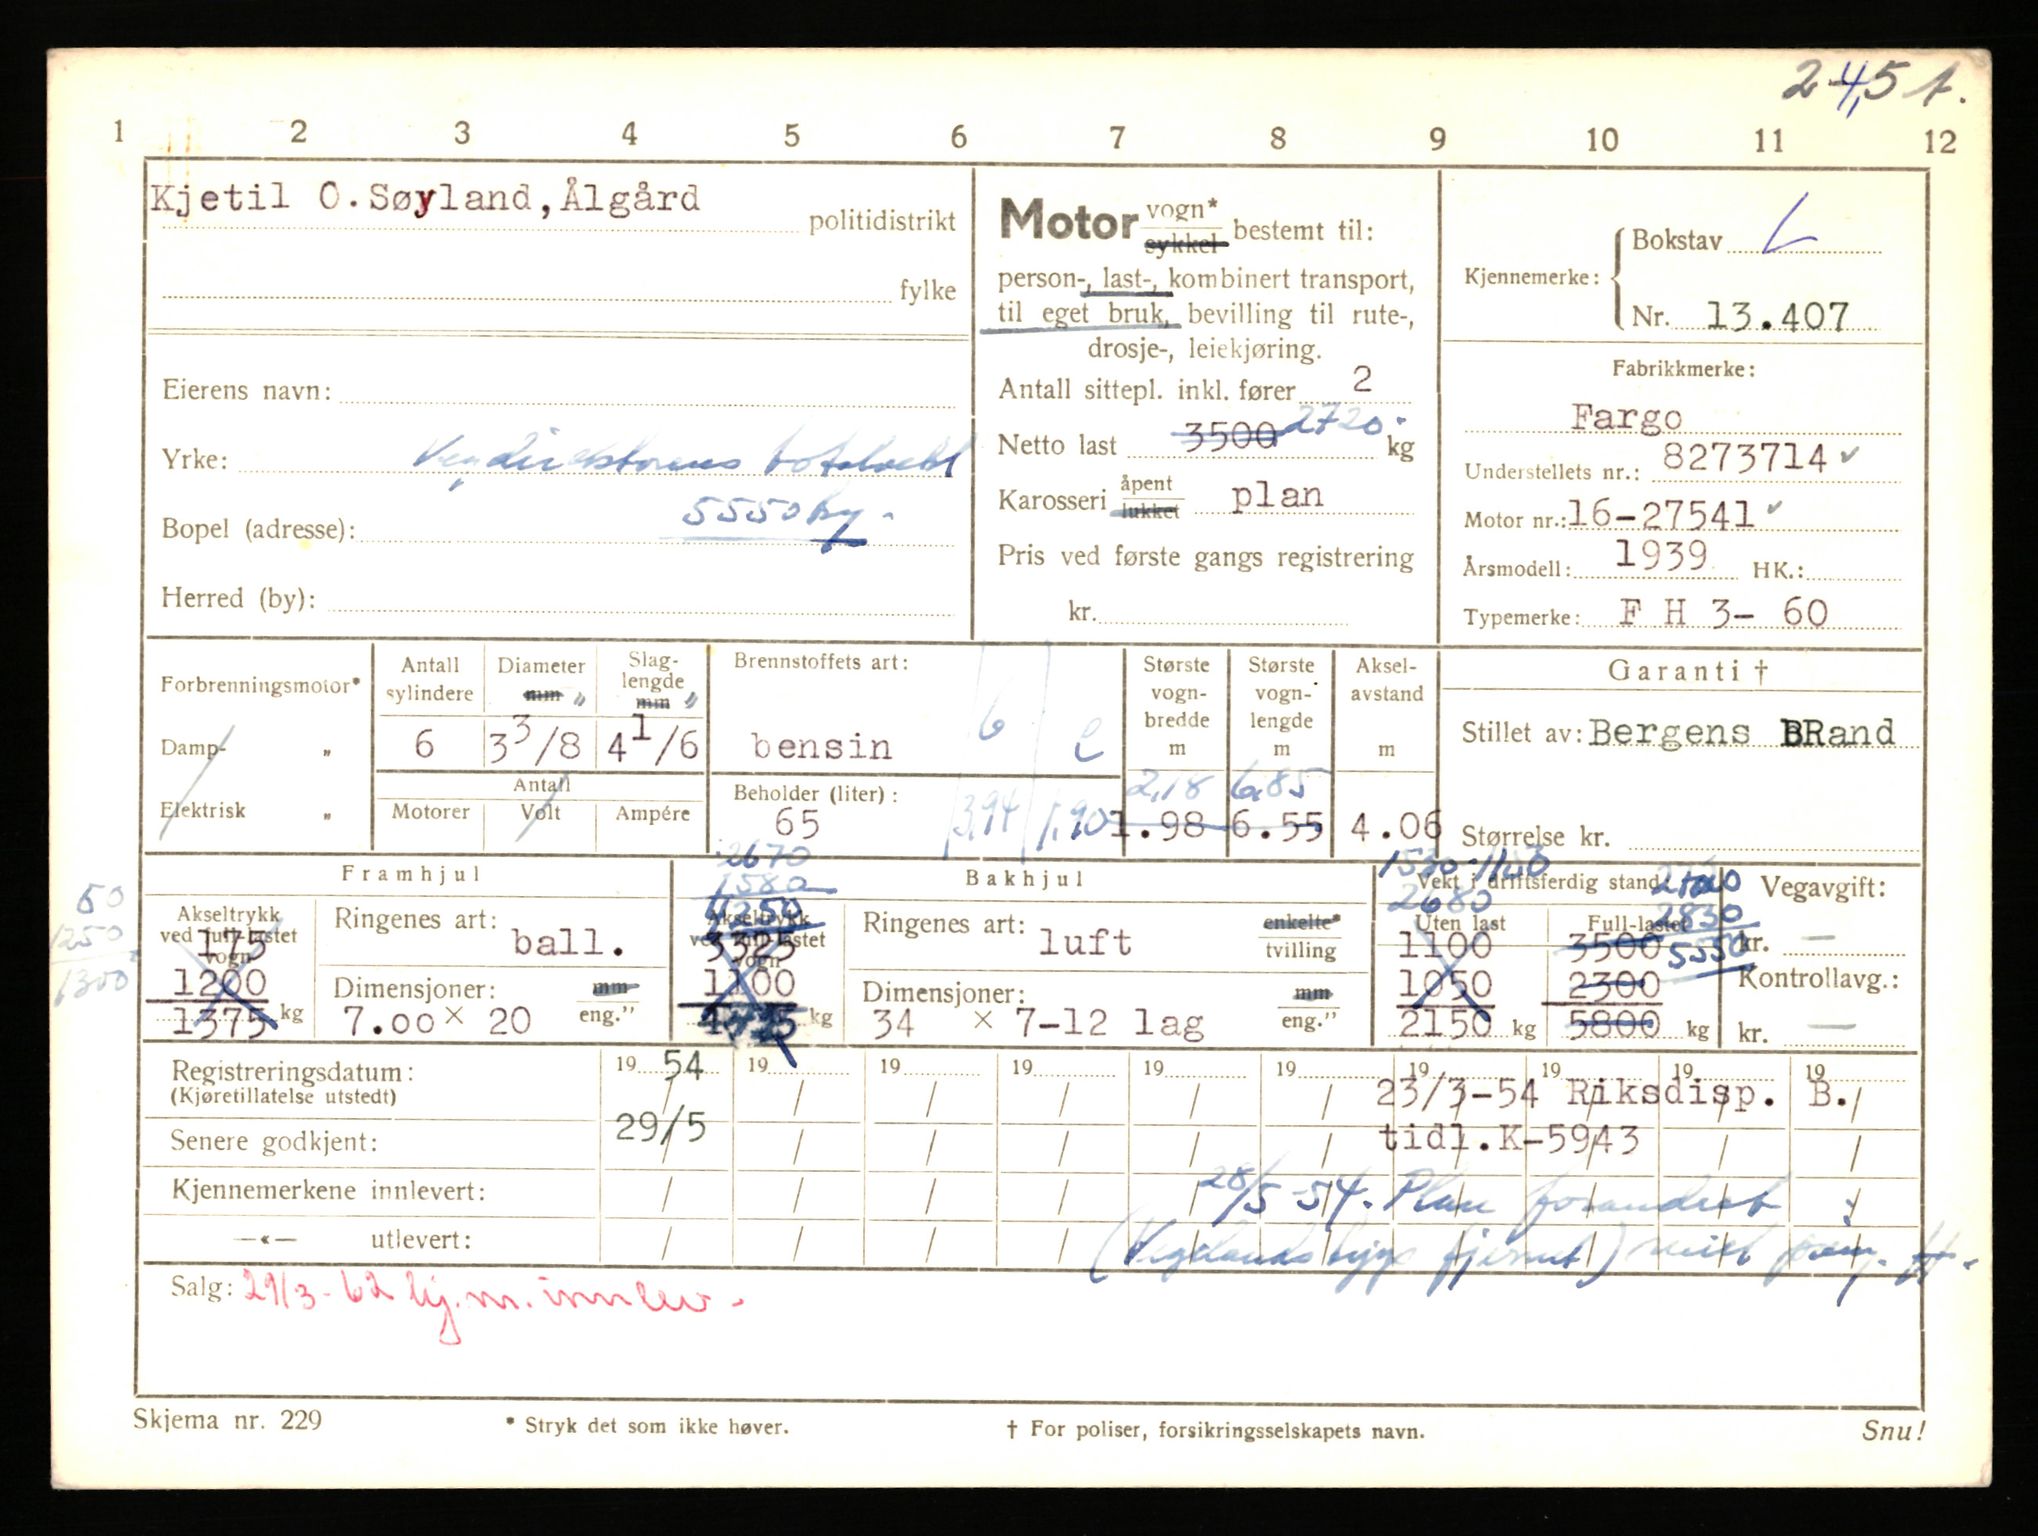 2 4,5 t.
1 2 3 4 5 6 7 8 9 10 11 12
Kjetil O.Søyland,Ålgård politidistrikt
fylke
Eierens navn:
Yrke: Vegdirektorens totalvekt
Bopel (adresse): 5550 kg.
Herred (by):
Motor vogn* sykkel bestemt til:
person-, last-, kombinert transport,
til eget bruk, bevilling til rute-,
drosje-, leiekjøring.
Antall sittepl. inkl. fører 2
Netto last 3500 2720 kg
Karosseri åpent lukket plan
Pris ved første gangs registrering
kr.
Kjennemerke: Bokstav L
Nr. 13.407
Fabrikkmerke:
Fargo
Understellets nr.: 8273714
Motor nr.: 16-27541
Årsmodell: 1939 HK.:
Typemerke: F H 3- 60
Forbrenningsmotor*
Damp- „
Elektrisk „
Antall sylindere
6
Diameter mm "
3 3/8
Slag-lengde mm "
4 1/6
Antall
Motorer Volt Ampére
Brennstoffets art:
bensin
Beholder (liter):
65
b e
3,94 1,90
Største vogn-bredde m
2,18
1.98
Største vogn-lengde m
6,85
6.55
Aksel-avstand m
4.06
Garanti †
Stillet av: Bergens BRand
Størrelse kr.
Framhjul
50
1250
1300
Akseltrykk ved full-lastet vogn
175
1200
1375 kg
Ringenes art: ball.
Dimensjoner: mm
7.00 × 20 eng."
Bakhjul
2670
1580
4250
Akseltrykk ved full-lastet vogn
3325
1100
kg
Ringenes art: enkelte* tvilling
luft
Dimensjoner: mm
34 × 7-12 lag eng."
1530-1150
Vekt i driftsferdig stand
2680
Uten last
1100
1050
2150 kg
2720
2830
5550
Full-lastet
3500
2300
5800 kg
Vegavgift:
kr. —
Kontrollavg.:
kr. —
Registreringsdatum: 19 54 19 19 19 19 19 19 19 19 19
(Kjøretillatelse utstedt) 23/3-54 Riksdisp. B.
Senere godkjent: 29/5 tidl.K-5943
Kjennemerkene innlevert: 28/5 54. Plan forandret
—«— utlevert: (Vegelands bygg fjernet)
Salg: 29/3-62 kj.m. innlev.
Skjema nr. 229
* Stryk det som ikke høver.
† For poliser, forsikringsselskapets navn.
Snu!